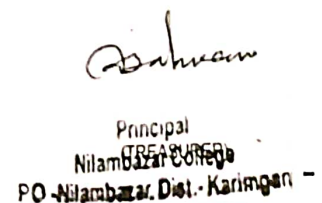 Principal
(TREASURER)
Nilambazar College
PO -Nilambazar. Dist.- Karimganj -